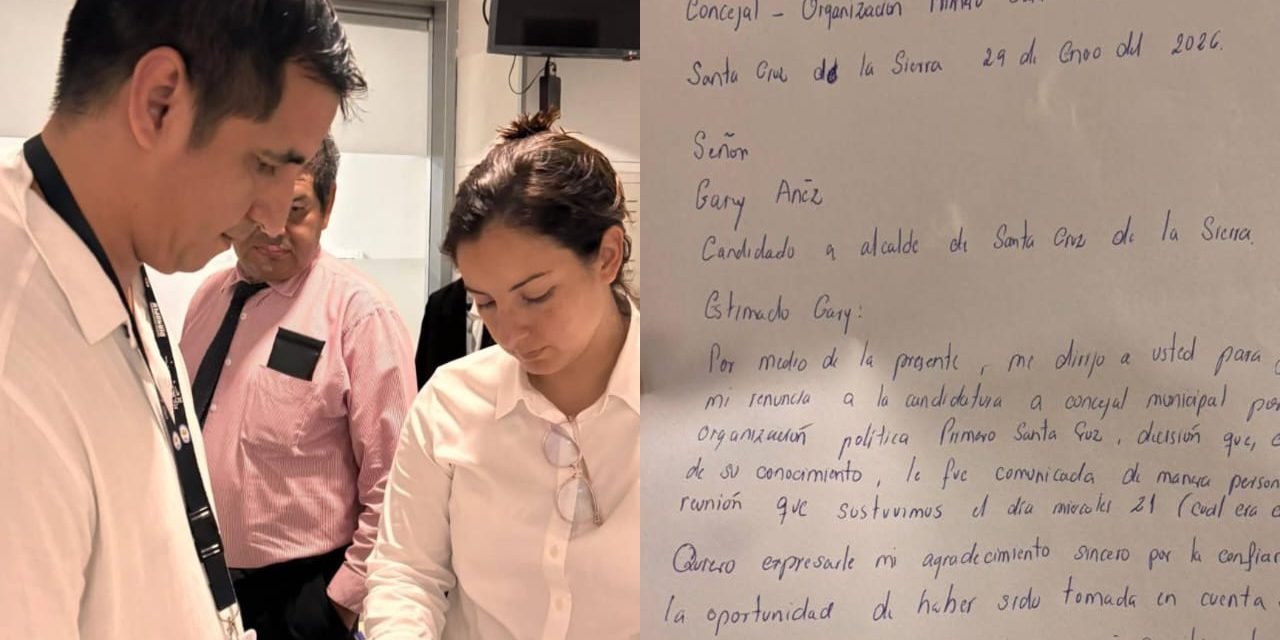 Concejal - Organización Primero
Santa Cruz de la Sierra 29 de Enero del 2026.
Señor
Gary Añez
Candidado a alcalde de Santa Cruz de la Sierra.
Estimado Gary:
Por medio de la presente, me dirijo a usted para
mi renuncia a la candidatura a concejal municipal por
organización política Primero Santa Cruz, decisión que,
de su conocimiento, le fue comunicada de manera person
reunión que sostuvimos el día miercoles 21 (cual era
Quiero expresarle mi agradecimiento sincero por la confian
la oportunidad de haber sido tomada en cuenta